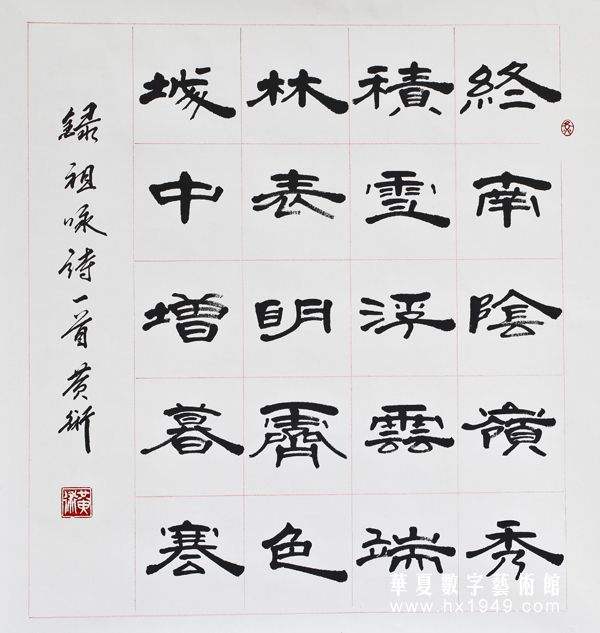 終南陰嶺秀
積雪浮雲端
林表明霽色
城中增暮寒
録祖咏詩一首 黄
華夏數字藝術館
www.hx1949.com